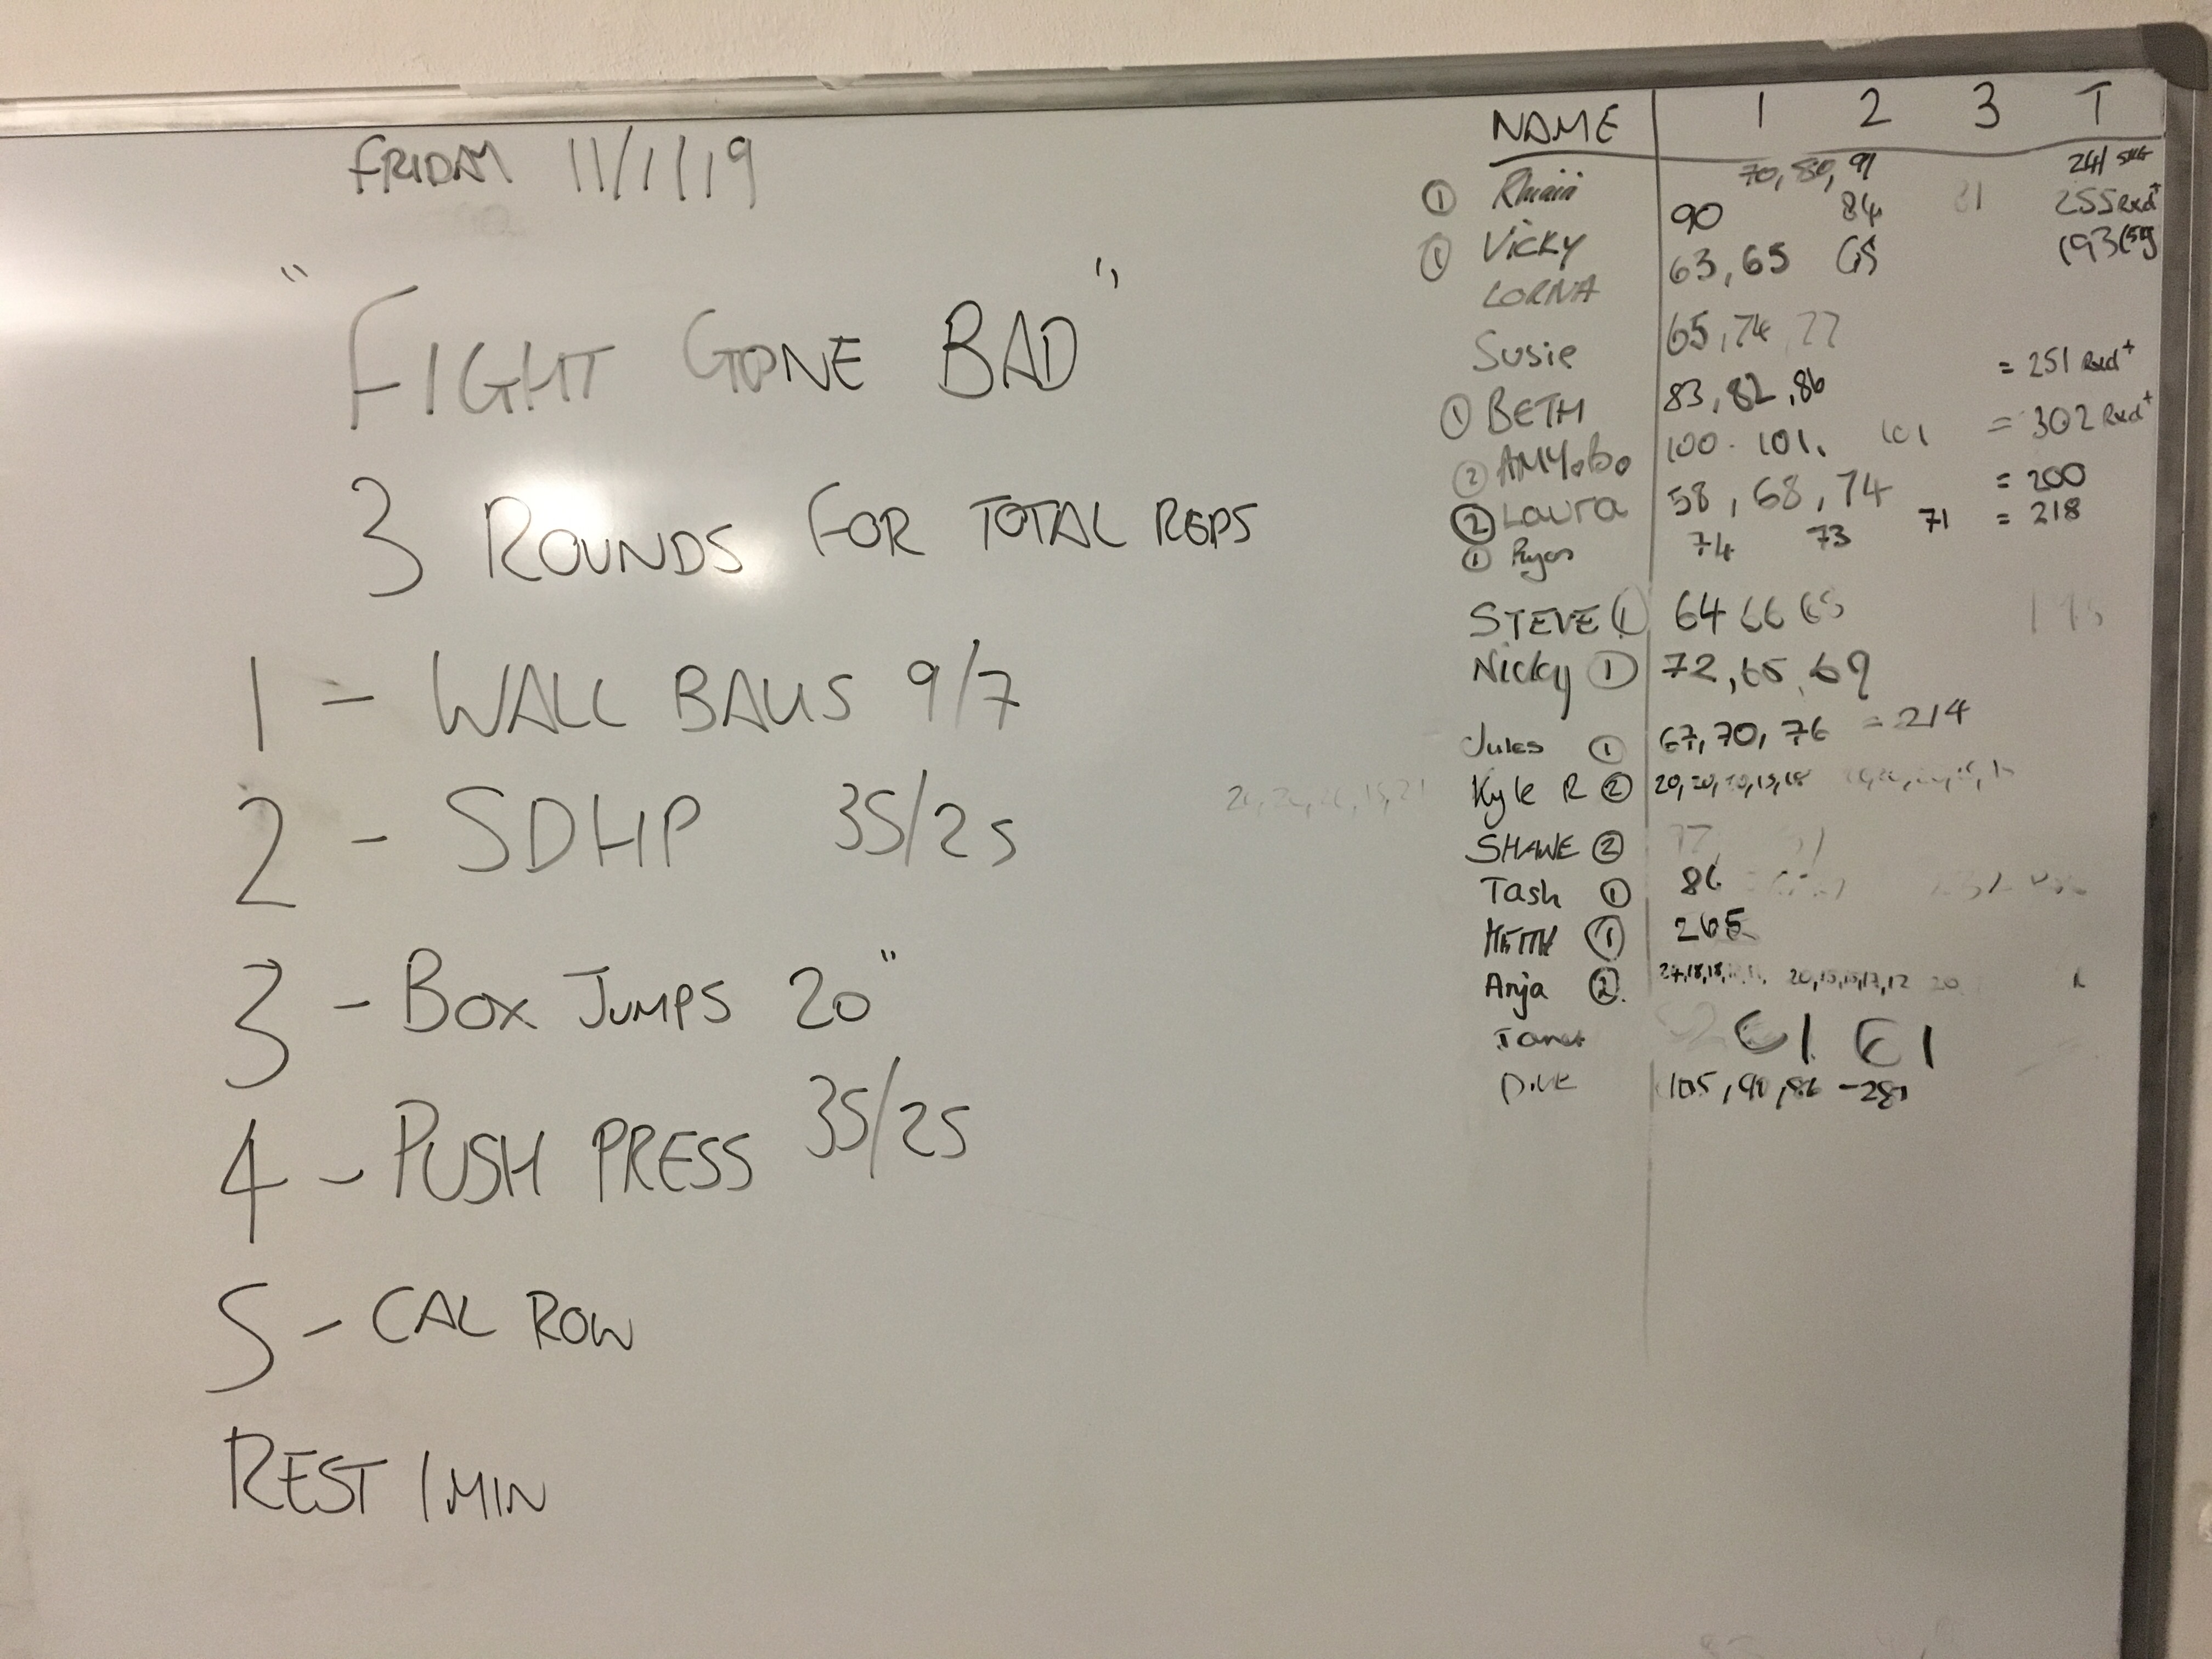 FRIDAY 11/1/19
"FIGHT GONE BAD"
3 ROUNDS FOR TOTAL REPS
1 - WALL BALLS 9/7
2 - SDHP 35/25
3 - BOX JUMPS 20"
4 - PUSH PRESS 35/25
5 - CAL ROW
REST 1 MIN
NAME 1 2 3 T
① 70, 80, 91 241
① Vicky 90 84 81 255 Rxd+
LORNA 63, 65 65 193
Susie 65, 74, 77
① BETH 83, 82, 86 = 251 Rxd+
② 100 - 101. 101 = 302 Rxd+
② Laura 58, 68, 74 = 200
① Ryan 74 73 71 = 218
STEVE ① 64 66 65
Nicky ① 72, 65, 69
Jules ① 67, 70, 76 = 214
Kyle R ② 20, 20, 20, 15, 18
SHANE ②
Tash ① 86
① 265
Anja ② 27, 18, 18, 20, 15, 15, 17, 12 20
61 61
105, 90, 86